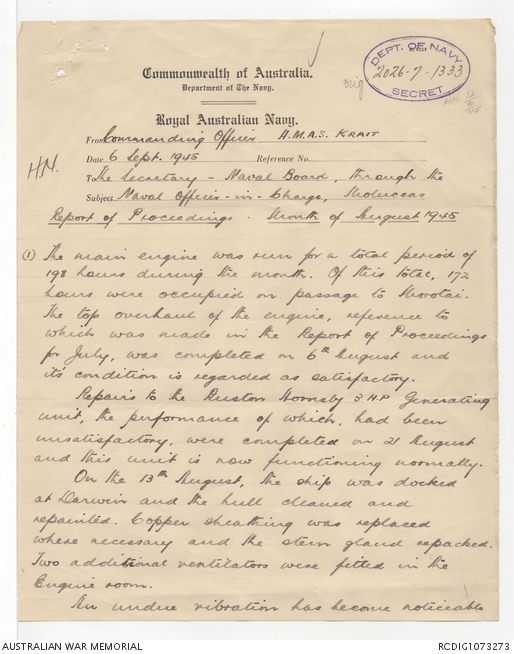 Commonwealth of Australia.
Department of The Navy.
Royal Australian Navy.
DEPT. OF NAVY
2026-7-1333
SECRET
orig
HN
HN.
From Commanding Officer H.M.A.S. KRAIT
Date 6 Sept. 1945 Reference No.
To The Secretary - Naval Board, through the
Subject Naval Officer-in-Charge, Moluccas
Report of Proceedings. Month of August 1945
(1) The main engine was run for a total period of
198 hours during the month. Of this total, 172
hours were occupied on passage to Morotai.
The top overhaul of the engine, reference to
which was made in the Report of Proceedings
for July, was completed on 6th August and
its' condition is regarded as satisfactory.
Repairs to the Ruston Hornsby 3 H.P Generating
unit, the performance of which, had been
unsatisfactory, were completed on 21 August
and this unit is now functioning normally.
On the 13th August, the ship was docked
at Darwin and the hull cleaned and
repainted. Copper sheathing was replaced
where necessary and the stern gland repacked.
Two additional ventilators were fitted in the
Engine room.
An undue vibration has become noticeable
AUSTRALIAN WAR MEMORIAL RCDIG1073273